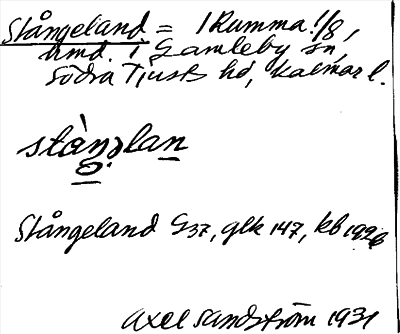 Stångeland = 1 Rumma 1/8,
hmd. i Gamleby sn,
Södra Tjusts hd, Kalmar l.
stàŋəlan
Stångeland G37, glk 147, kb 1926
Axel Sandström 1931